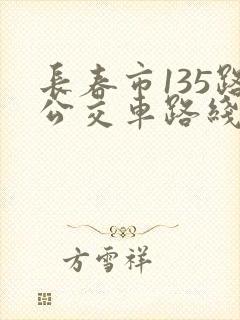 長春市135路
公交車路綫
方雪祥